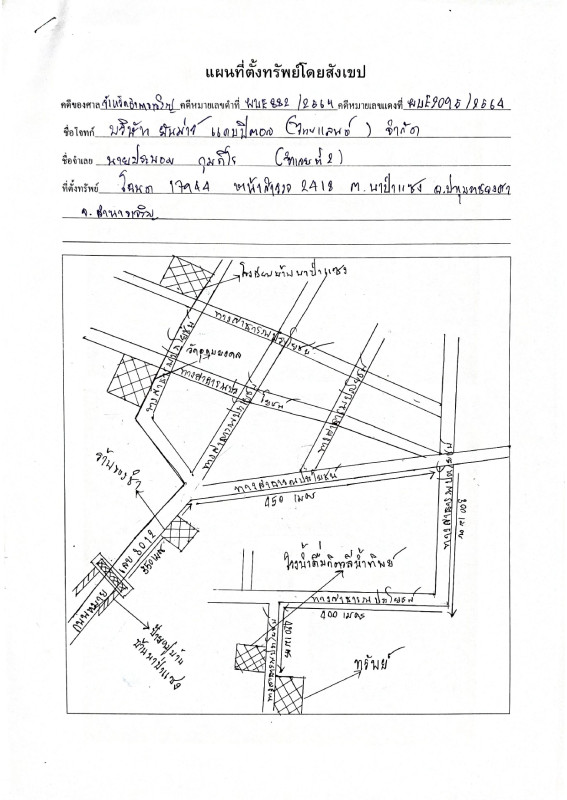 แผนที่ตั้งทรัพย์โดยสังเขป
คดีของศาล จังหวัดอำนาจเจริญ คดีหมายเลขดำที่ ผบE882 /2564 คดีหมายเลขแดงที่ ผบE2095 /2564
ชื่อโจทก์ บริษัท ลีนม่าร์ แคปปิตอล (ไทยแลนด์ ) จำกัด
ชื่อจำเลย นายประนอม กุมภิโร (จำเลยที่ 2)
ที่ตั้งทรัพย์ โฉนด 17944 หน้าสำรวจ 2418 ต.นาป่าแซง อ.ปทุมราชวงศา
จ.อำนาจเจริญ
โรงเรียนบ้านนาป่าแซง
ทางสาธารณประโยชน์
ทางสาธารณประโยชน์
วัดอุดมมงคล
ทางสาธารณประโยชน์
ทางสาธารณประโยชน์
ทางสาธารณประโยชน์
ร้านของชำ
ทางสาธารณประโยชน์
450 เมตร
ทางสาธารณประโยชน์
300 เมตร
ถนนหมายเลข 3012
350 เมตร
โรงน้ำดื่มกิตาลีน้ำทิพย์
ทางสาธารณประโยชน์
400 เมตร
ป้ายหมู่บ้าน
บ้านนาป่าแซง
ทางสาธารณประโยชน์
เมตร
ทรัพย์